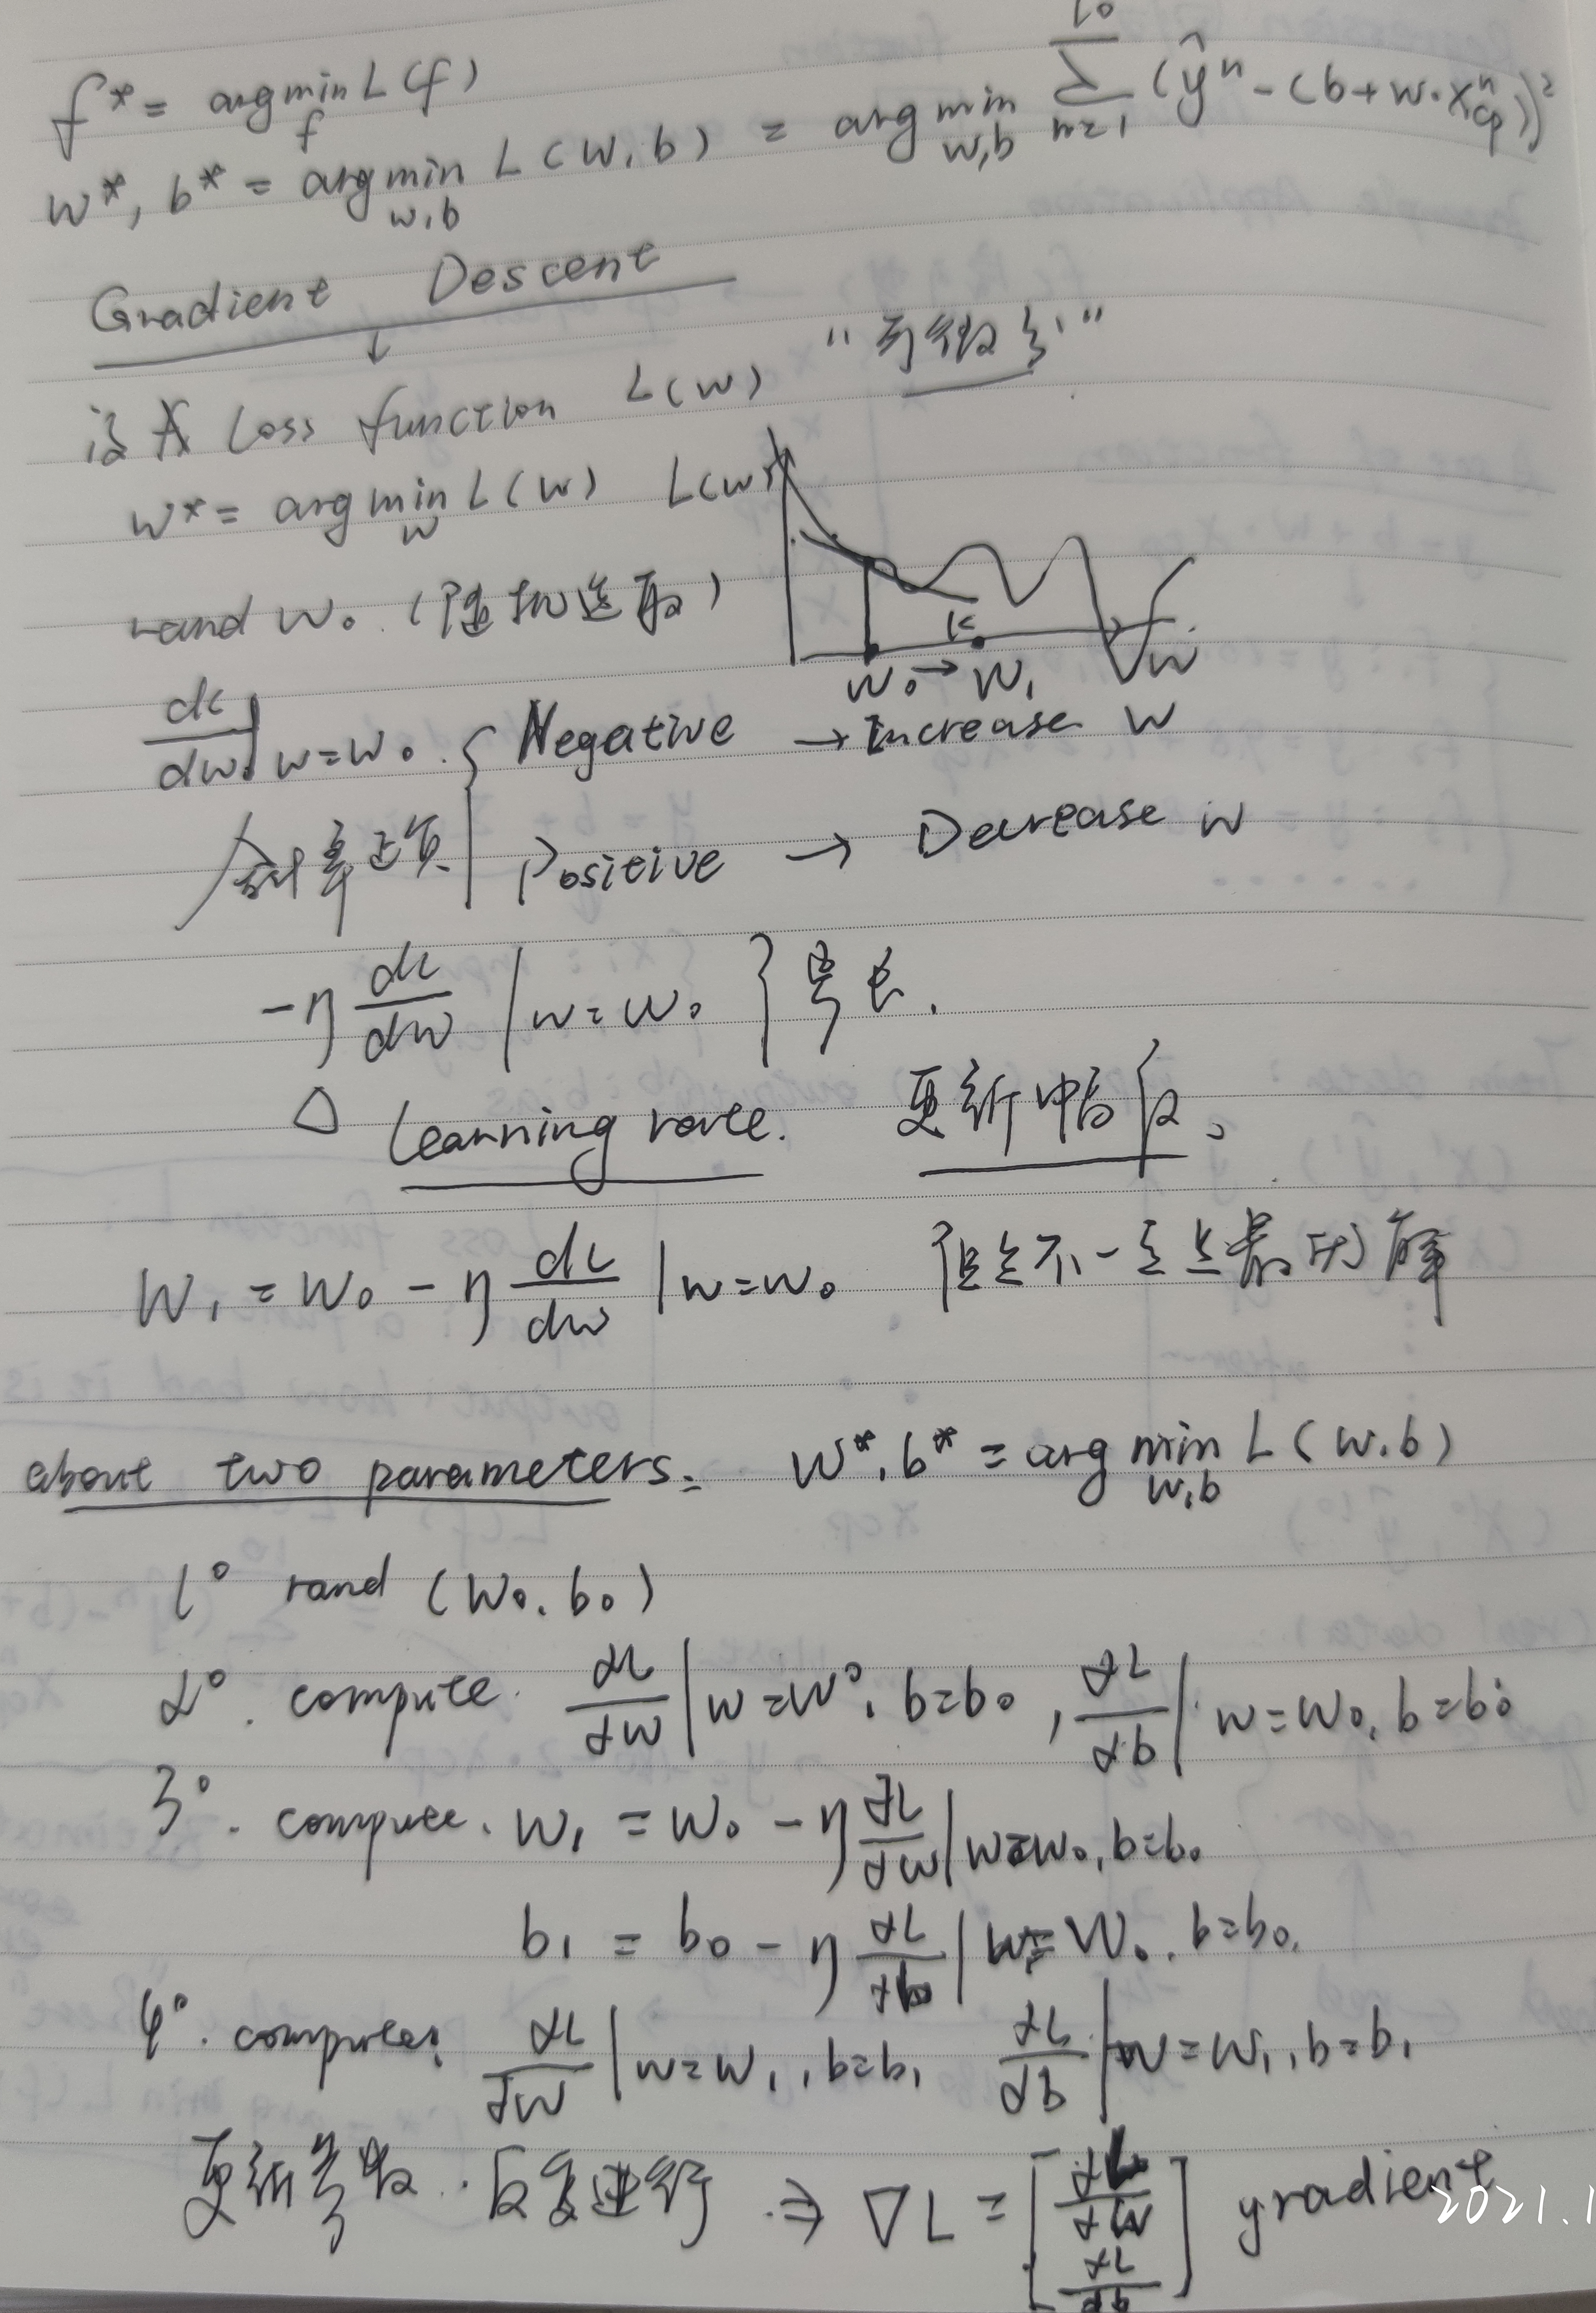 f* = arg min_f L(f)
w*, b* = arg min_{w,b} L(w,b) = arg min_{w,b} Σ_{n=1}^{10} (ŷⁿ - (b + w·xⁿ_cp))²
Gradient Descent
↓
"可微分"
设 Loss function L(w)
w* = arg min_w L(w) L(w)
rand w₀ (随机选取)
w₀ → w₁ w
dL/dw | w=w₀ { Negative → Increase w
斜率正负 Positive → Decrease w
-η dL/dw | w=w₀ }
△ Learning rate. 更新
w₁ = w₀ - η dL/dw | w=w₀ 但是不一定是最 解
about two parameters: w*, b* = arg min_{w,b} L(w,b)
1° rand (w₀, b₀)
2°. compute. ∂L/∂w | w=w⁰, b=b₀, ∂L/∂b | w=w₀, b=b₀
3°. compute. w₁ = w₀ - η ∂L/∂w | w=w₀, b=b₀
b₁ = b₀ - η ∂L/∂b | w=w₀, b=b₀.
4°. compute: ∂L/∂w | w=w₁, b=b₁ ∂L/∂b | w=w₁, b=b₁
更新参数. 反复进行 ⇒ ∇L = [∂L/∂w ∂L/∂b] gradient
2021.1